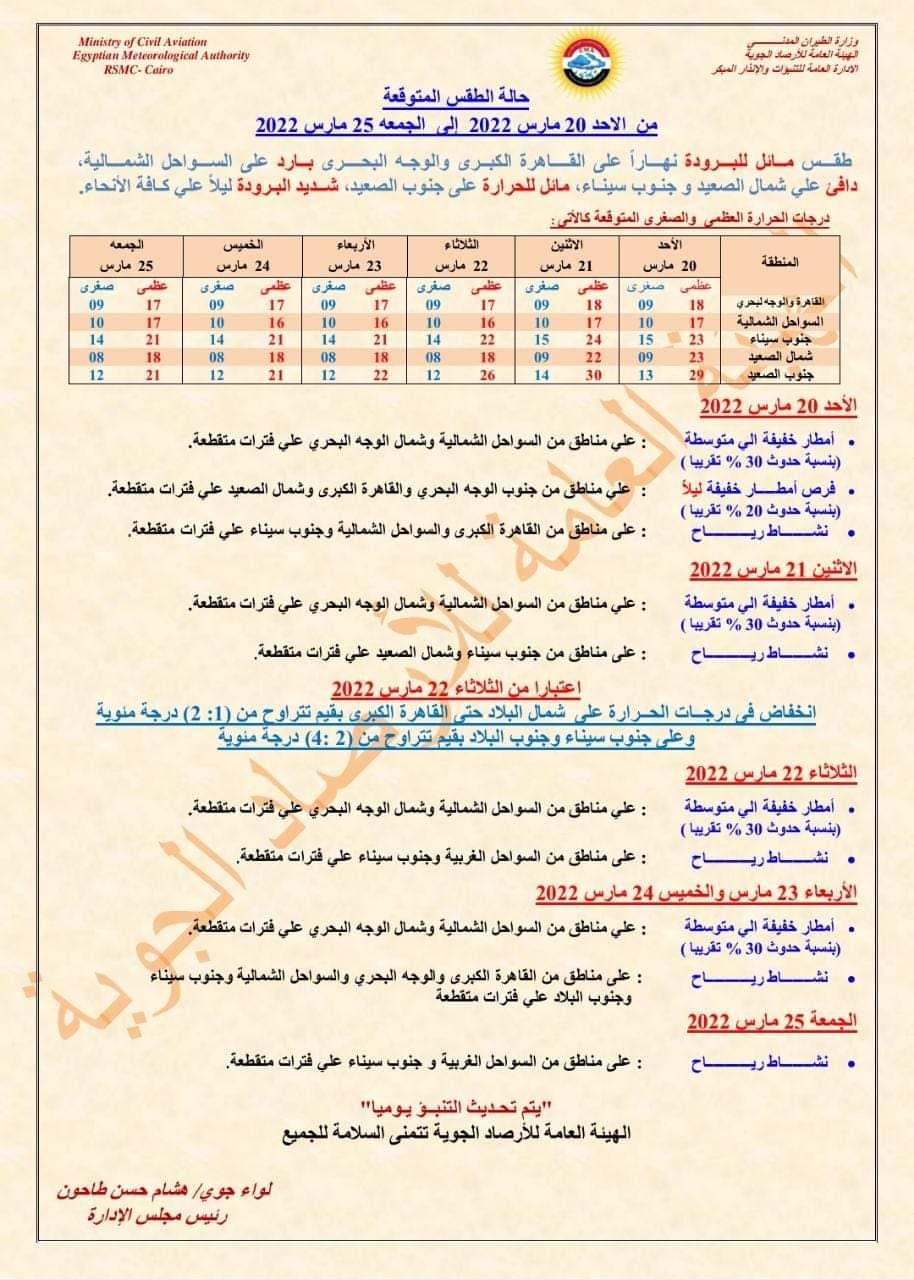 Ministry of Civil Aviation
Egyptian Meteorological Authority
RSMC- Cairo
وزارة الطيران المدني
الهيئة العامة للأرصاد الجوية
الادارة العامة للتنبؤات والإنذار المبكر
حالة الطقس المتوقعة
من الاحد 20 مارس 2022 إلى الجمعه 25 مارس 2022
طقس مائل للبرودة نهاراً على القاهرة الكبرى والوجه البحرى بارد على السواحل الشمالية،
دافئ علي شمال الصعيد و جنوب سيناء، مائل للحرارة على جنوب الصعيد، شديد البرودة ليلاً علي كافة الأنحاء.
درجات الحرارة العظمي والصغرى المتوقعة كالأتي:
المنطقة الأحد الاثنين الثلاثاء الأربعاء الخميس الجمعه
20 مارس 21 مارس 22 مارس 23 مارس 24 مارس 25 مارس
عظمى صغرى عظمى صغرى عظمى صغرى عظمى صغرى عظمى صغرى عظمى صغرى
القاهرة والوجه لبحري 18 09 18 09 17 09 17 09 17 09 17 09
السواحل الشمالية 17 10 17 10 16 10 16 10 16 10 17 10
جنوب سيناء 23 15 24 15 22 14 21 14 21 14 21 14
شمال الصعيد 23 09 22 09 18 08 18 08 18 08 18 08
جنوب الصعيد 29 13 30 14 26 12 22 12 21 12 21 12
الأحد 20 مارس 2022
• أمطار خفيفة الي متوسطة : علي مناطق من السواحل الشمالية وشمال الوجه البحري علي فترات متقطعة.
(بنسبة حدوث 30 % تقريبا )
• فرص أمطار خفيفة ليلاً : علي مناطق من جنوب الوجه البحري والقاهرة الكبرى وشمال الصعيد علي فترات متقطعة.
(بنسبة حدوث 20 % تقريبا )
• نشاط رياح : على مناطق من القاهرة الكبرى والسواحل الشمالية وجنوب سيناء علي فترات متقطعة.
الاثنين 21 مارس 2022
• أمطار خفيفة الي متوسطة : علي مناطق من السواحل الشمالية وشمال الوجه البحري علي فترات متقطعة.
(بنسبة حدوث 30 % تقريبا )
• نشاط رياح : على مناطق من جنوب سيناء وشمال الصعيد علي فترات متقطعة.
اعتبارا من الثلاثاء 22 مارس 2022
انخفاض فى درجات الحرارة على شمال البلاد حتى القاهرة الكبرى بقيم تتراوح من (1: 2) درجة مئوية
وعلى جنوب سيناء وجنوب البلاد بقيم تتراوح من (2 :4) درجة مئوية
الثلاثاء 22 مارس 2022
• أمطار خفيفة الي متوسطة : علي مناطق من السواحل الشمالية وشمال الوجه البحري علي فترات متقطعة.
(بنسبة حدوث 30 % تقريبا )
• نشاط رياح : على مناطق من السواحل الغربية وجنوب سيناء علي فترات متقطعة.
الأربعاء 23 مارس والخميس 24 مارس 2022
• أمطار خفيفة الي متوسطة : علي مناطق من السواحل الشمالية وشمال الوجه البحري علي فترات متقطعة.
(بنسبة حدوث 30 % تقريبا )
• نشاط رياح : على مناطق من القاهرة الكبرى والوجه البحري والسواحل الشمالية وجنوب سيناء
وجنوب البلاد علي فترات متقطعة
الجمعة 25 مارس 2022
• نشاط رياح : على مناطق من السواحل الغربية و جنوب سيناء علي فترات متقطعة.
"يتم تحديث التنبؤ يوميا"
الهيئة العامة للأرصاد الجوية تتمنى السلامة للجميع
لواء جوي/ هشام حسن طاحون
رئيس مجلس الإدارة
الهيئة العامة للأرصاد الجوية